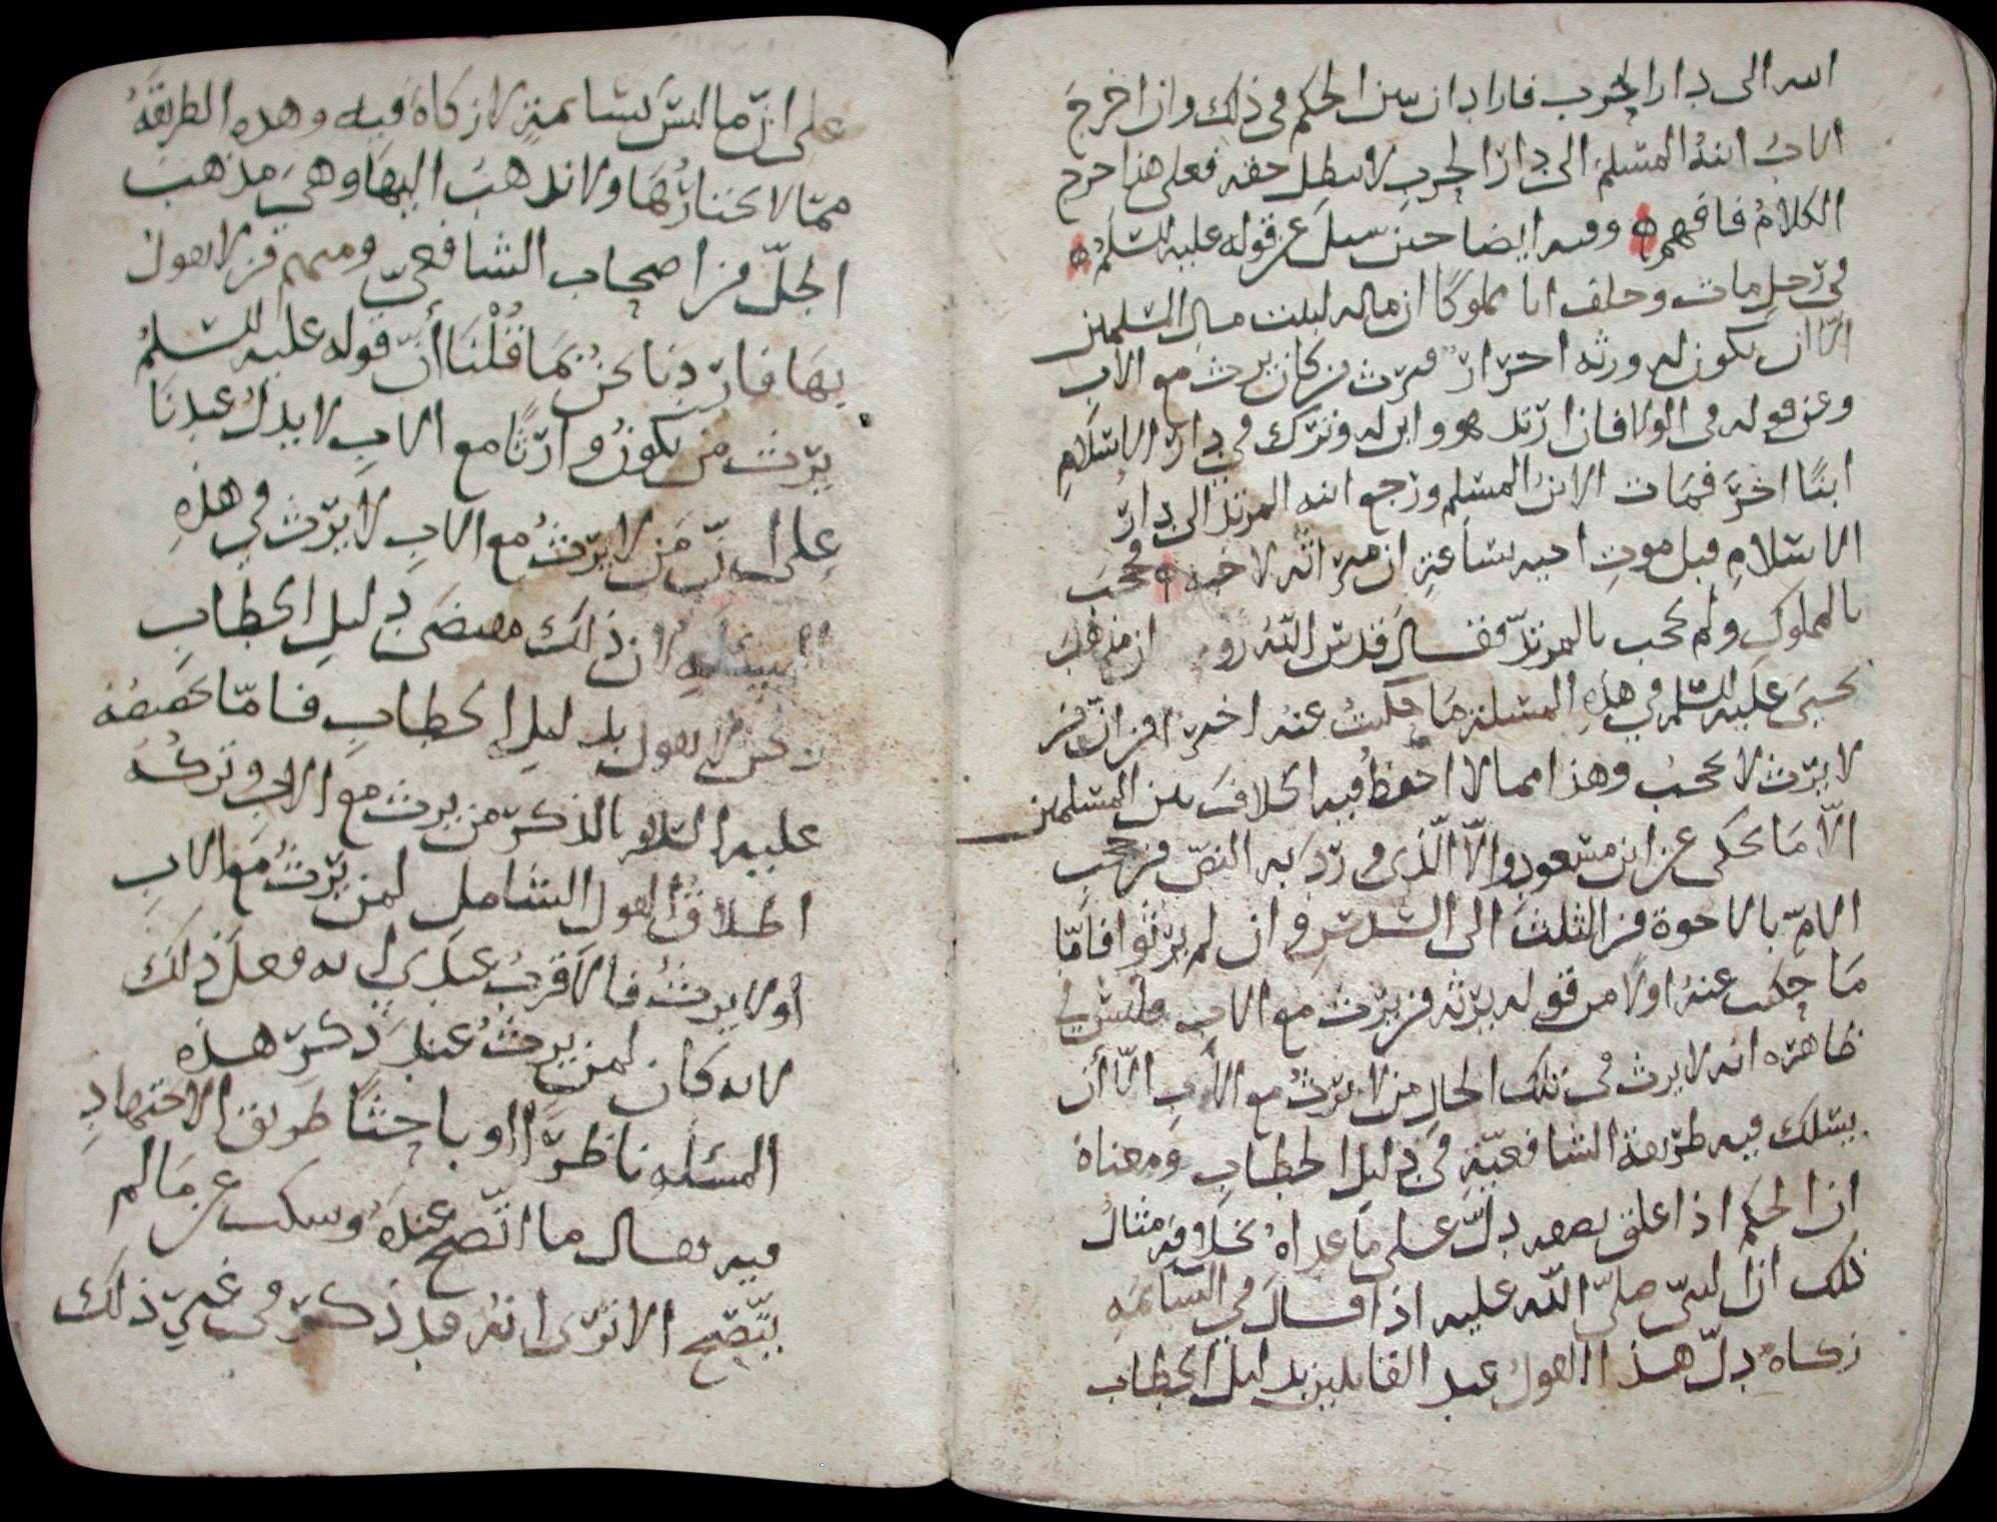 الله الى دار الحرب فاراد ان يبين الحكم في ذلك وان اخرج
الاب ابنه المسلم الى دار الحرب لا يبطل حقه فعلى هذا خرج
الكلام فافهمه وفيه ايضا حين سئل عن قوله عليه السلم
في رجل مات وخلف ابا مملوكا ان ماله لبيت مال المسلمين
الا ان يكون له ورثة احرار فيرث من كان يرث مع الاب
وعن قوله في الولا فان ارتد هو وابن له وترك في دار الاسلام
ابنا اخر فمات الابن المسلم ورجع ابنه المرتد الى دار
الاسلام قبل موت اخيه بساعة ان ميراثه لاخيه فحجب
بالمملوك ولم يحجب بالمرتد فقال قدس الله رو ان مذهب
يحيى عليه السلم في هذه المسئلة ما حكيت عنه اخرا من ان من
لا يرث لا يحجب وهذا مما لا احفظ فيه الخلاف بين المسلمين
الا ما يحكى عن ابن مسعود والا الذي ورد به النص من حجب
الام بالاخوة من الثلث الى السدس وان لم يرثوا فاما
ما حكيت عنه اولا من قوله يرثه من يرث مع الاب فليس في
ظاهره انه لا يرث في تلك الحال من لا يرث مع الاب الا أن
يسلك فيه طريقة الشافعية في دليل الخطاب ومعناه
ان الحكم اذا علق بصفه دل على ما عداه بخلافه مثال
ذلك ان النبي صلى الله عليه اذا قال في السائمه
زكاه دل هذا القول عند القايلين بدليل الخطاب
على ان ما ليس بسائمة لا زكاة فيه وهذه الطريقة
مما لا نختارها ولا نذهب اليها وهي مذهب
الجل من اصحاب الشافعي ومنهم من لا يقول
بها فاردنا نحن بما قلنا أن قوله عليه السلم
يرث من يكون وارثا مع الاب لا يدل عندنا
على ان من لا يرث مع الاب لا يرث في هذه
المسئله لان ذلك مقتضى دليل الخطاب
ونحن لا نقول بدليل الخطاب فاما تخصيصه
عليه السلام بالذكر من يرث مع الاب وتركه
اطلاق القول الشامل لمن يرث مع الاب
أو لا يرث فالاقرب عندي انه فعل ذلك
لانه كان لمن يرث عند ذكر هذه
المسئله ناظرا او باحثا طريق الاجتهاد
فيه فقال ما اتضح عنده وسكت عن ما لم
يتضح الا ترى انه قد ذكر في غير ذلك